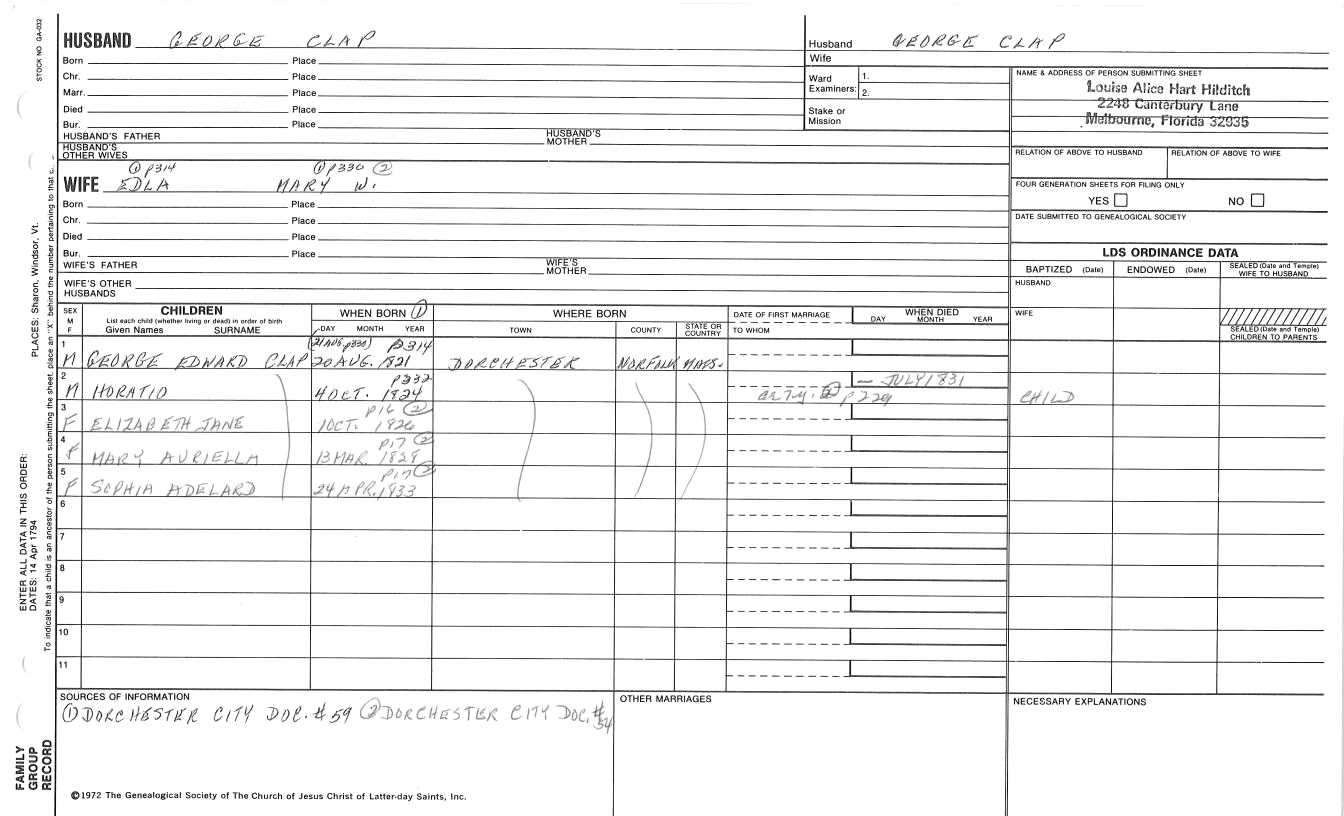 STOCK NO GA-032
HUSBAND GEORGE CLAP
Born Place
Chr. Place
Marr. Place
Died Place
Bur. Place
HUSBAND'S FATHER HUSBAND'S MOTHER
HUSBAND'S OTHER WIVES
① P314 ① P330 ②
WIFE EDLA MARY W.
Born Place
Chr. Place
Died Place
Bur. Place
WIFE'S FATHER WIFE'S MOTHER
WIFE'S OTHER HUSBANDS
Husband GEORGE CLAP
Wife
Ward Examiners: 1.
2.
Stake or Mission
NAME & ADDRESS OF PERSON SUBMITTING SHEET
Louise Alice Hart Hilditch
2248 Canterbury Lane
Melbourne, Florida 32935
RELATION OF ABOVE TO HUSBAND RELATION OF ABOVE TO WIFE
FOUR GENERATION SHEETS FOR FILING ONLY
YES NO
DATE SUBMITTED TO GENEALOGICAL SOCIETY
LDS ORDINANCE DATA
BAPTIZED (Date) ENDOWED (Date) SEALED (Date and Temple) WIFE TO HUSBAND
HUSBAND
WIFE
SEALED (Date and Temple) CHILDREN TO PARENTS
SEX M F
CHILDREN
List each child (whether living or dead) in order of birth
Given Names SURNAME
WHEN BORN ①
DAY MONTH YEAR
WHERE BORN
TOWN COUNTY STATE OR COUNTRY
DATE OF FIRST MARRIAGE
TO WHOM
WHEN DIED
DAY MONTH YEAR
1 (21 AUG. p330) P314
M GEORGE EDWARD CLAP 20 AUG. 1821 DORCHESTER NORFOLK MASS.
2 P332 — JULY 1831
M HORATIO 4 OCT. 1824 P229 CHILD
3 P16 ②
F ELIZABETH JANE 1 OCT. 1826
4 P17 ②
F MARY AURIELLA 13 MAR. 1829
5 P17 ②
F SOPHIA ADELARD 24 APR. 1833
6
7
8
9
10
11
SOURCES OF INFORMATION
① DORCHESTER CITY DOC. # 59 ② DORCHESTER CITY DOC. # 54
OTHER MARRIAGES
NECESSARY EXPLANATIONS
©1972 The Genealogical Society of The Church of Jesus Christ of Latter-day Saints, Inc.
PLACES: Sharon, Windsor, Vt.
ENTER ALL DATA IN THIS ORDER:
DATES: 14 Apr 1794
To indicate that a child is an ancestor of the person submitting the sheet, place an "X" behind the number pertaining to that
FAMILY GROUP RECORD